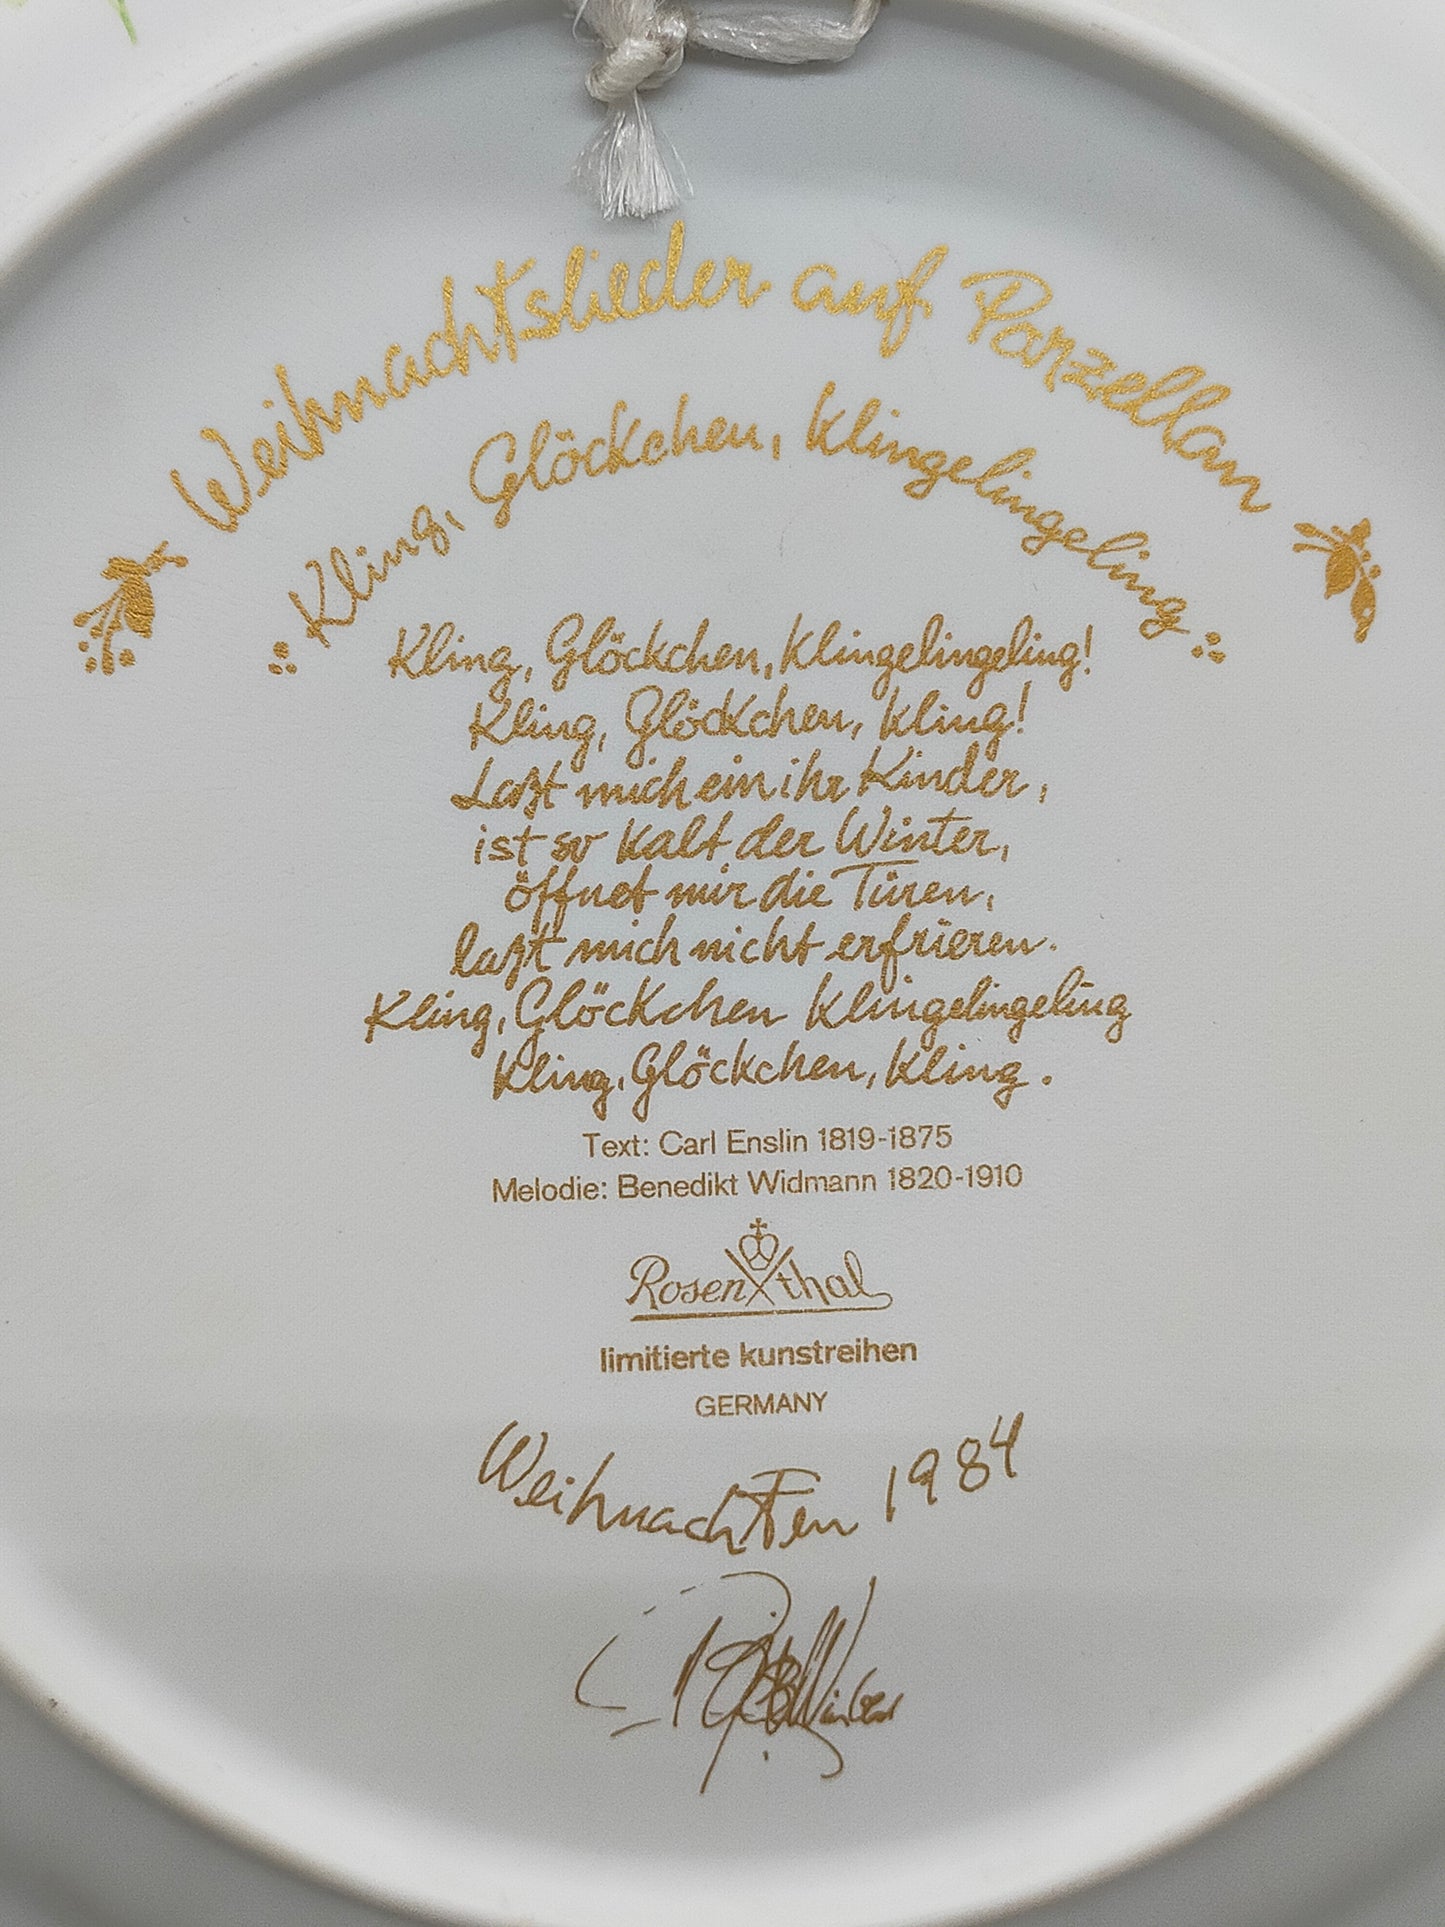 Weihnachtslieder auf Porzellan
Kling, Glöckchen, Klingelingeling
Kling, Glöckchen, Klingelingeling!
Kling, Glöckchen, Kling!
Laßt mich ein ihr Kinder,
ist so kalt der Winter,
öffnet mir die Türen,
laßt mich nicht erfrieren.
Kling, Glöckchen Klingelingeling
Kling, Glöckchen, Kling.
Text: Carl Enslin 1819-1875
Melodie: Benedikt Widmann 1820-1910
Rosenthal
limitierte kunstreihen
GERMANY
Weihnachten 1984